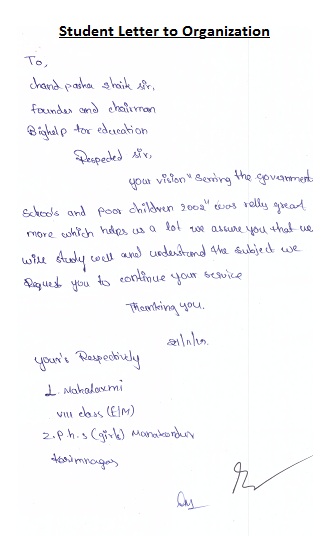 Student Letter to Organization
To,
chand pasha shaik sir,
founder and chairman
Bighelp for education
Respected sir,
your vision "Serving the government
schools and poor children 2002" was relly great
more which helps us a lot we assure you that we
will study well and understand the subject we
Request you to continue your service
Thanking you.
your's Respectively
L. Mahalaxmi
VIII class (E/M)
Z.p.h.s (girls) Manakondur
karimnagar